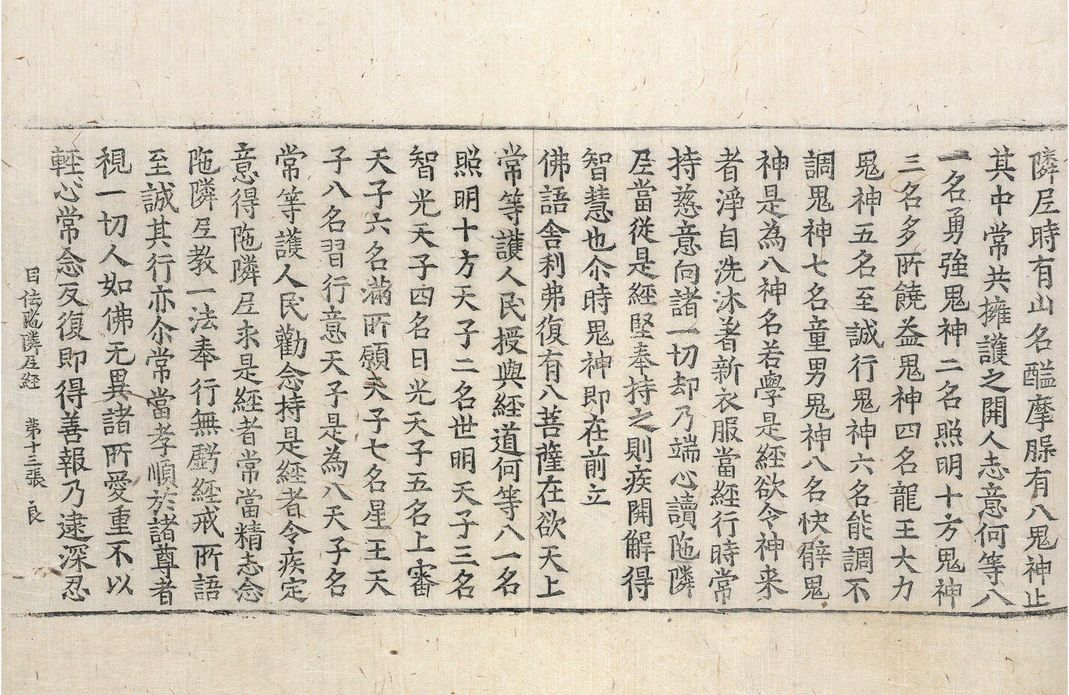 隣尼時有山名醯摩臊有八鬼神止
其中常共擁護之開人志意何等八
一名勇強鬼神二名照明十方鬼神
三名多所饒益鬼神四名龍王大力
鬼神五名至誠行鬼神六名能調不
調鬼神七名童男鬼神八名快臂鬼
神是為八神名若學是經欲令神来
者淨自洗沐著新衣服當經行時常
持慈意向諸一切却乃端心讀陁隣
尼當從是經堅奉持之則疾開解得
智慧也尒時鬼神即在前立
佛語舍利弗復有八菩薩在欲天上
常等護人民授與經道何等八一名
照明十方天子二名世明天子三名
智光天子四名日光天子五名上審
天子六名滿所願天子七名星王天
子八名習行意天子是為八天子名
常等護人民勸念持是經者令疾定
意得陁隣尼求是經者常當精志念
陁隣尼教一法奉行無虧經戒所語
至誠其行亦尒常當孝順於諸尊者
視一切人如佛无異諸所愛重不以
輕心常念反復即得善報乃逮深忍
陁隣尼經 第十三張 良